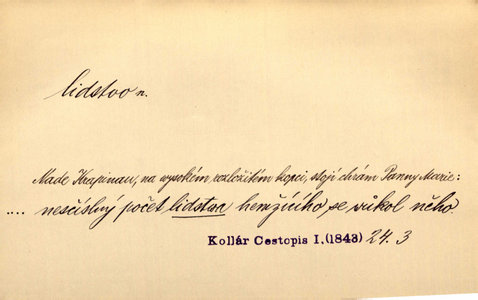 lidstvo n.
Nade Krapinau, na wysokém rozložitém kopci, stojí chrám Panny Marie:
.... nesčíslný počet lidstva hemžícího se wůkol něho
Kollár Cestopis I.(1843) 24. 3